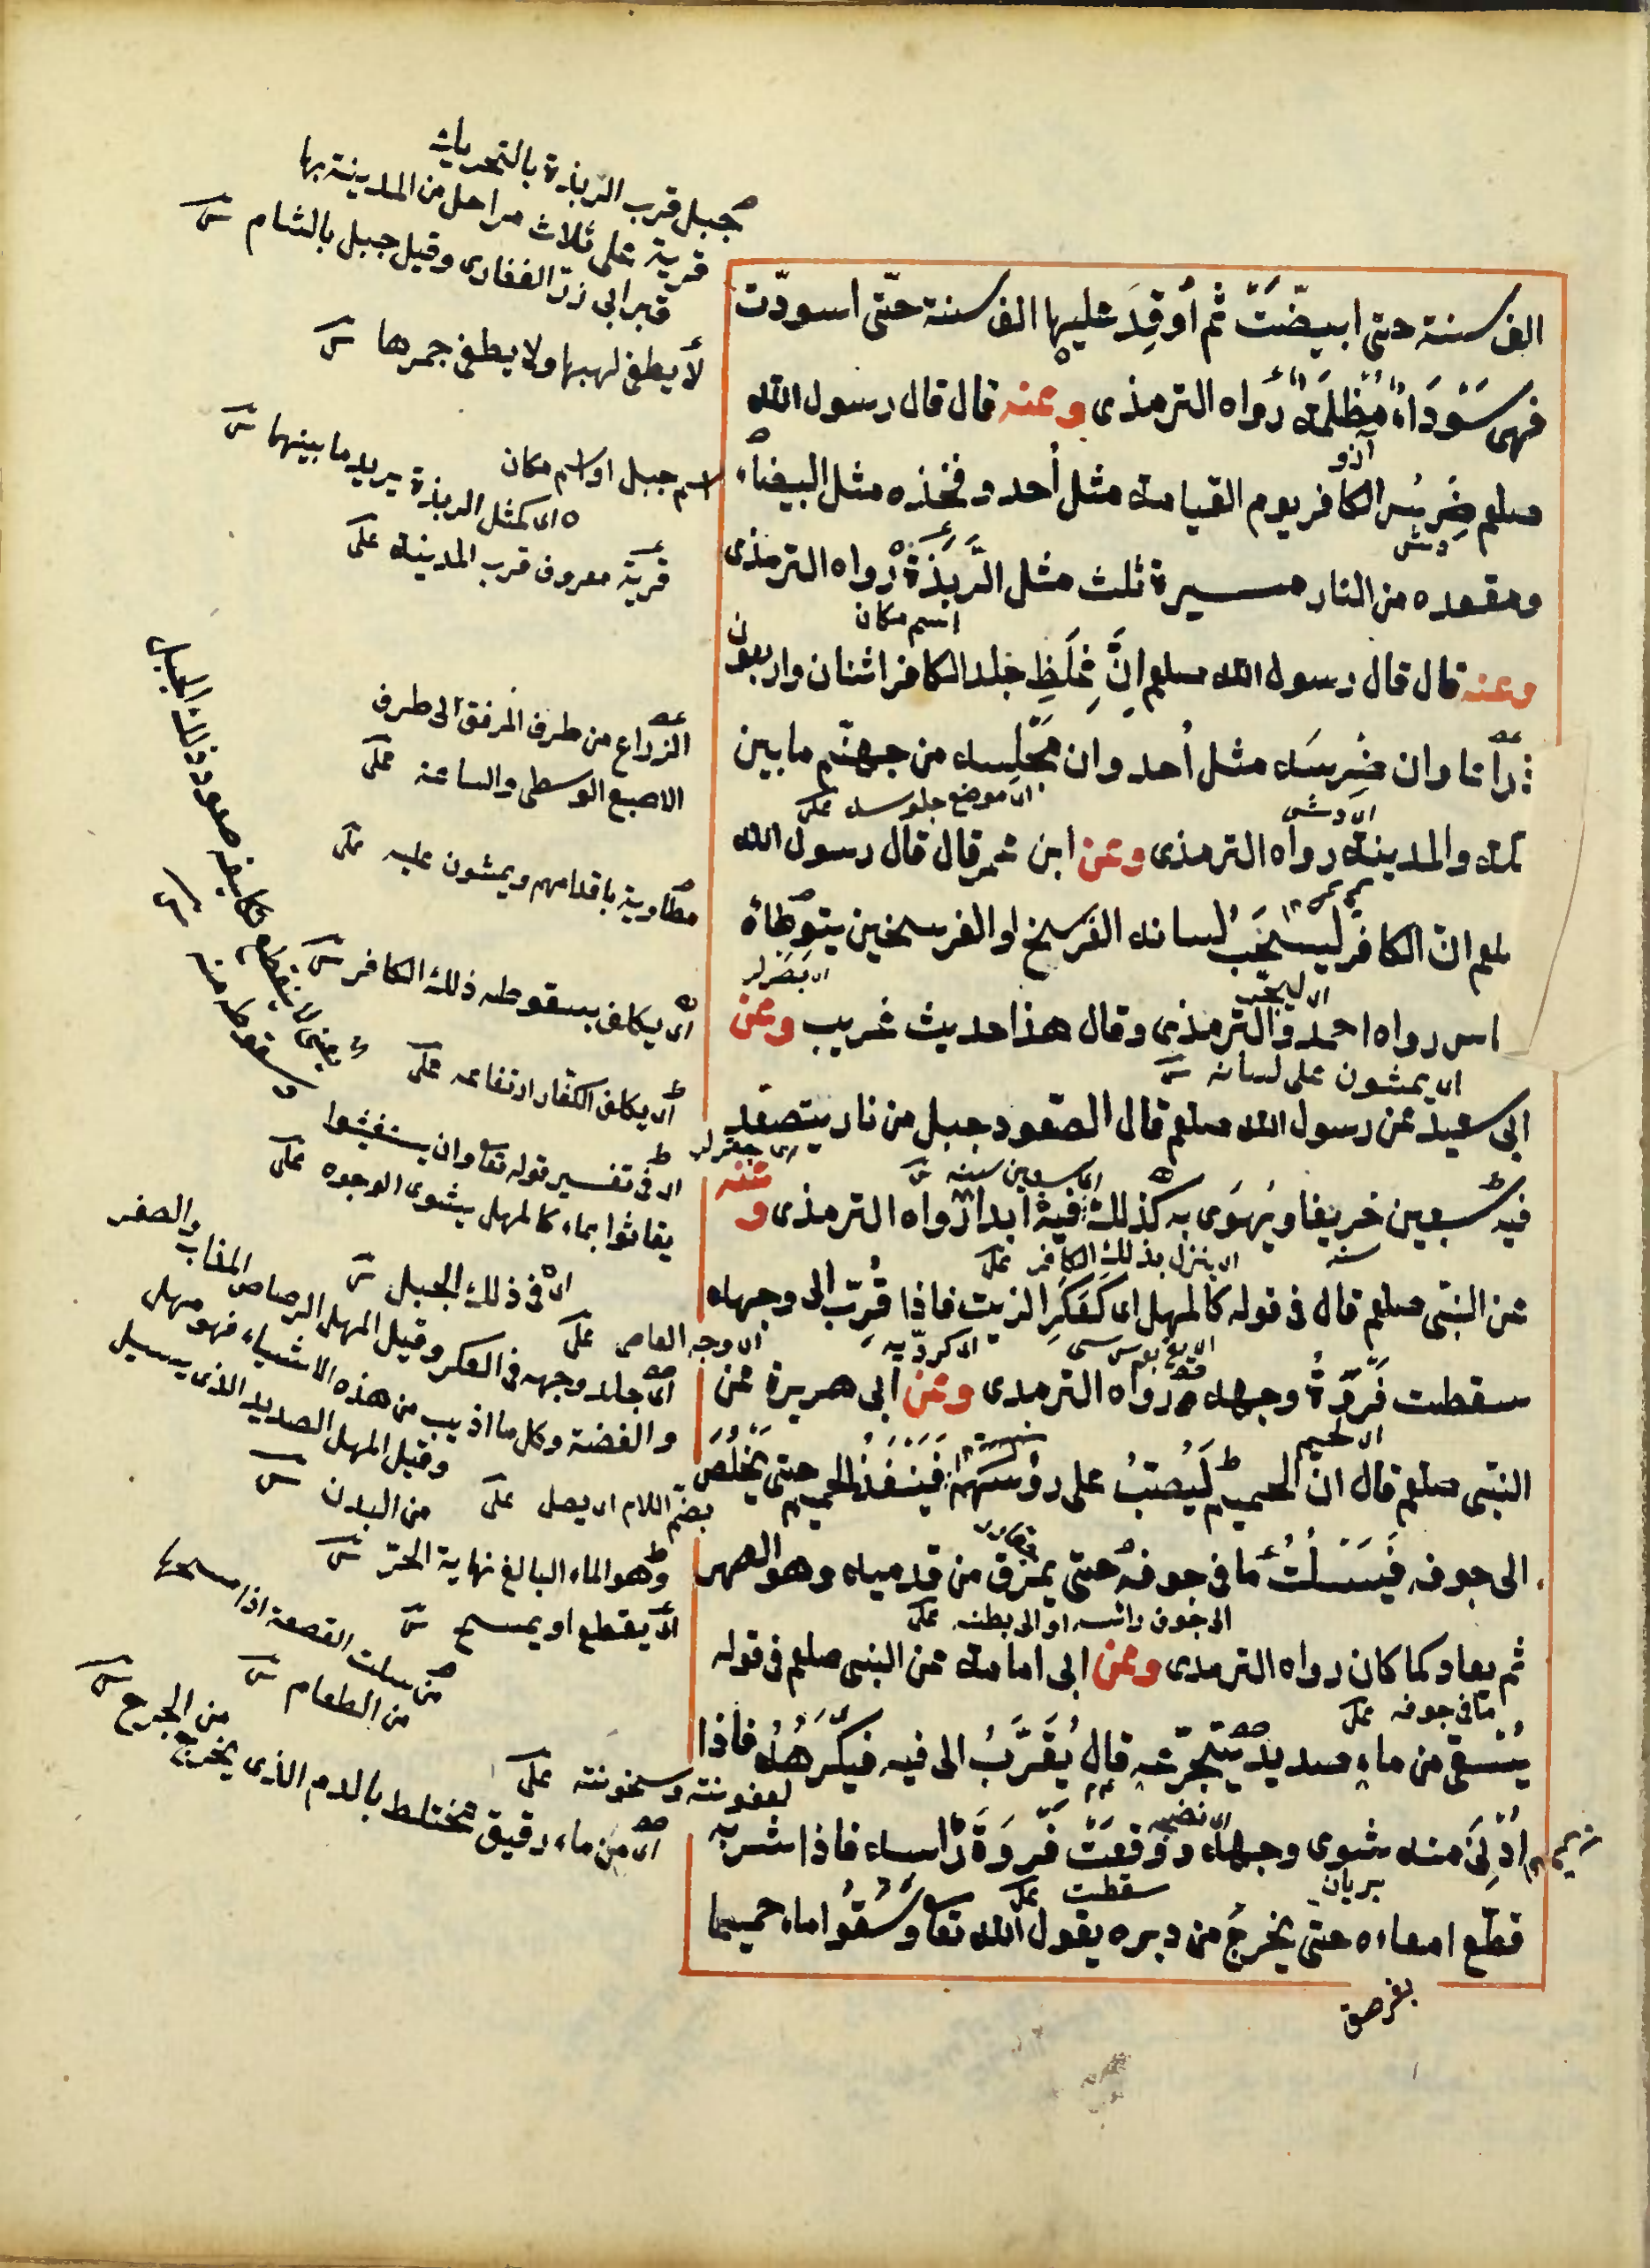 الف سنة حتى ابيضّت ثم أُوقِدَ عليها الف سنة حتّى اسودّت
فهى سَوْدَاءُ مُظْلِمَةٌ رواه الترمذى وعنه قال قال رسول الله
صلعم ضِرسُ الكافر يوم القيامة مثل أُحد وفخذه مثل البيضاء
ومقعده من النار مسيرة ثلث مثل الرَّبَذَة رواه الترمذى
اسم مكان
وعنه قال قال رسول الله صلعم انَّ غِلَظِ جلد الكافر اثنان واربعون
ذراعا وان ضِرسَه مثل أُحد وان مَجْلِسه من جهنّم ما بين
اى موضع جلوسه على
مكة والمدينة رواه الترمذى وعن ابن عمر قال قال رسول الله
صلعم انّ الكافر ليسحَب لسانه الفرسخ او الفرسخين يتوطّاه
الناس رواه احمد والترمذى وقال هذا حديث غريب وعن
اى يمشون على لسانه
ابى سعيد عن رسول الله صلعم قال الصّعود جبل من نار يتصعّد
اى سبعين سنة
فيه سبعين خريفا ويَهوَى به كذلك فيه ابدا رواه الترمذى وعنه
سنة اى ينزل بذلك الكافر على
عن النبّى صلعم قال فى قوله كالمهل اى كَعَكَرِ الزيت فاذا قُرّب الى وجهه
سقطت فَرْوَةُ وجهه رواه الترمذى وعن ابى هريرة عن
النبّى صلعم قال انّ الحميم لَيُصبُّ على رؤسهم فَيَنْفَذُ الحميم حتى يَخْلُصَ
الى جوفه فَيَسْلُتُ ما فى جوفه حتى يمرق من قدميه وهو الصهر
الى جوف رأسه او الى بطنه على
ثم يعاد كما كان رواه الترمذى وعن ابى امامة عن النبى صلعم فى قوله
ما فى جوفه على
يُسْقى من ماءٍ صديد يتجرّعه قال يُقَرَّبُ الى فيه فيكّرهُهُ فاذا
اُدْنِىَ منه شوى وجهه ووقعَتْ فَروَةَ رأسه فاذا شربه
بريان سقطت على
قطّع امعاءه حتى يخرجَ من دبره يقول الله تعا وسُقُوا ماء حميما
جبل قرب الربذة بالتحريك
قرية على ثلاث مراحل من المدينة بها
قبر ابى ذرّ الغفارى وقيل جبل بالشام
لا يطفى لهبها ولا يطفى جمرها
اسم جبل او اسم مكان
اى كمثل الربذة يريد ما بينهما
قرية معروف قرب المدينة على
الذراع من طرف المرفق الى طرف
الاصبع الوسطى والساعد على
باقدامهم ويمشون عليه على
اى يكلف بسقوطه ذلك الكافر
اى يكلف الكفّار ارتفاعه على
اى فى تفسير قوله تعا وان يستغيثوا
يغاثوا بماء كالمهل يشوى الوجوه على
اى فى ذلك الجبل
اى وجه العاصى على
اى جلد وجهه فى العكر وقيل المهل الرصاص المذاب والصفر
والفضة وكل ما اذيب من هذه الاشياء فهو مهل
وقيل المهل الصديد الذى يسيل
من البدن
بضم اللام اى يصل على
وهو الماء البالغ نهاية الحرّ
اى يقطع او يمسح
من سلت القصعة اذا مسحها
من الطعام
لعفونته وسخونته على
اى من ماء رقيق مختلط بالدم الذى يخرج
من الجرح
يعنى لا ينقطع تكليف صعود ذلك الجبل
وسقوطه منه